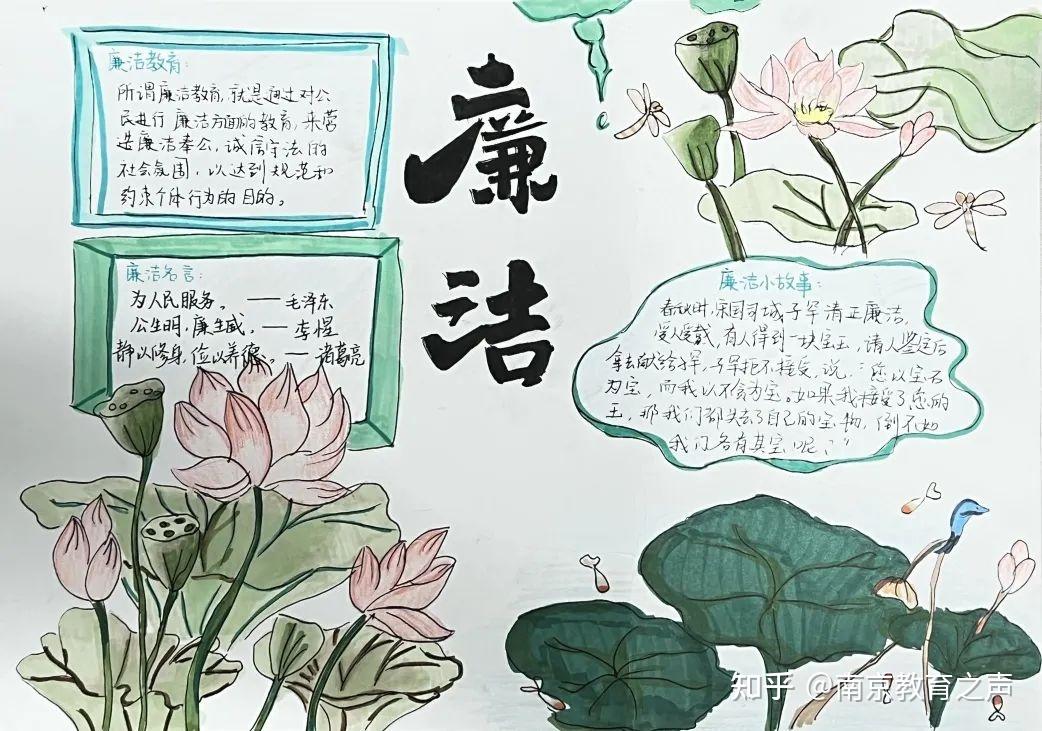 廉洁
廉洁教育:
所谓廉洁教育,就是通过对公
民进行廉洁方面的教育,来营
造廉洁奉公,诚信守法的
社会氛围,以达到规范和
约束个体行为的目的。
廉洁名言:
为人民服务。——毛泽东
公生明,廉生威。——李惺
静以修身,俭以养德。——诸葛亮
廉洁小故事:
春秋时,宋国司城子罕清正廉洁,
受人爱戴,有人得到一块宝玉,请人鉴定后
拿去献给子罕,子罕拒不接受,说:“您以宝石
为宝,而我以不贪为宝。如果我接受了您的
玉,那我们都失去了自己的宝物,倒不如
我们各有其宝呢?”
知乎 @南京教育之声